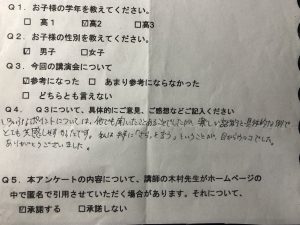 Q1. お子様の学年を教えてください。
□ 高1 ☑高2 □高3
Q2. お子様の性別を教えてください。
☑ 男子 □女子
Q3. 今回の講演会について
☑参考になった □ あまり参考にならなかった
□ どちらとも言えない
Q4. Q3について、具体的にご意見、ご感想などご記入ください
については、他でも聞いたことがありましたが、楽しい と具体的な例で
とても実感しやすかったです。私は に「 」を言う、ということが、目からウロコでした。
ありがとうございました。
Q5. 本アンケートの内容について、講師の木村先生がホームページの
中で匿名で引用させていただく場合があります。それについて、
☑承諾する □承諾しない